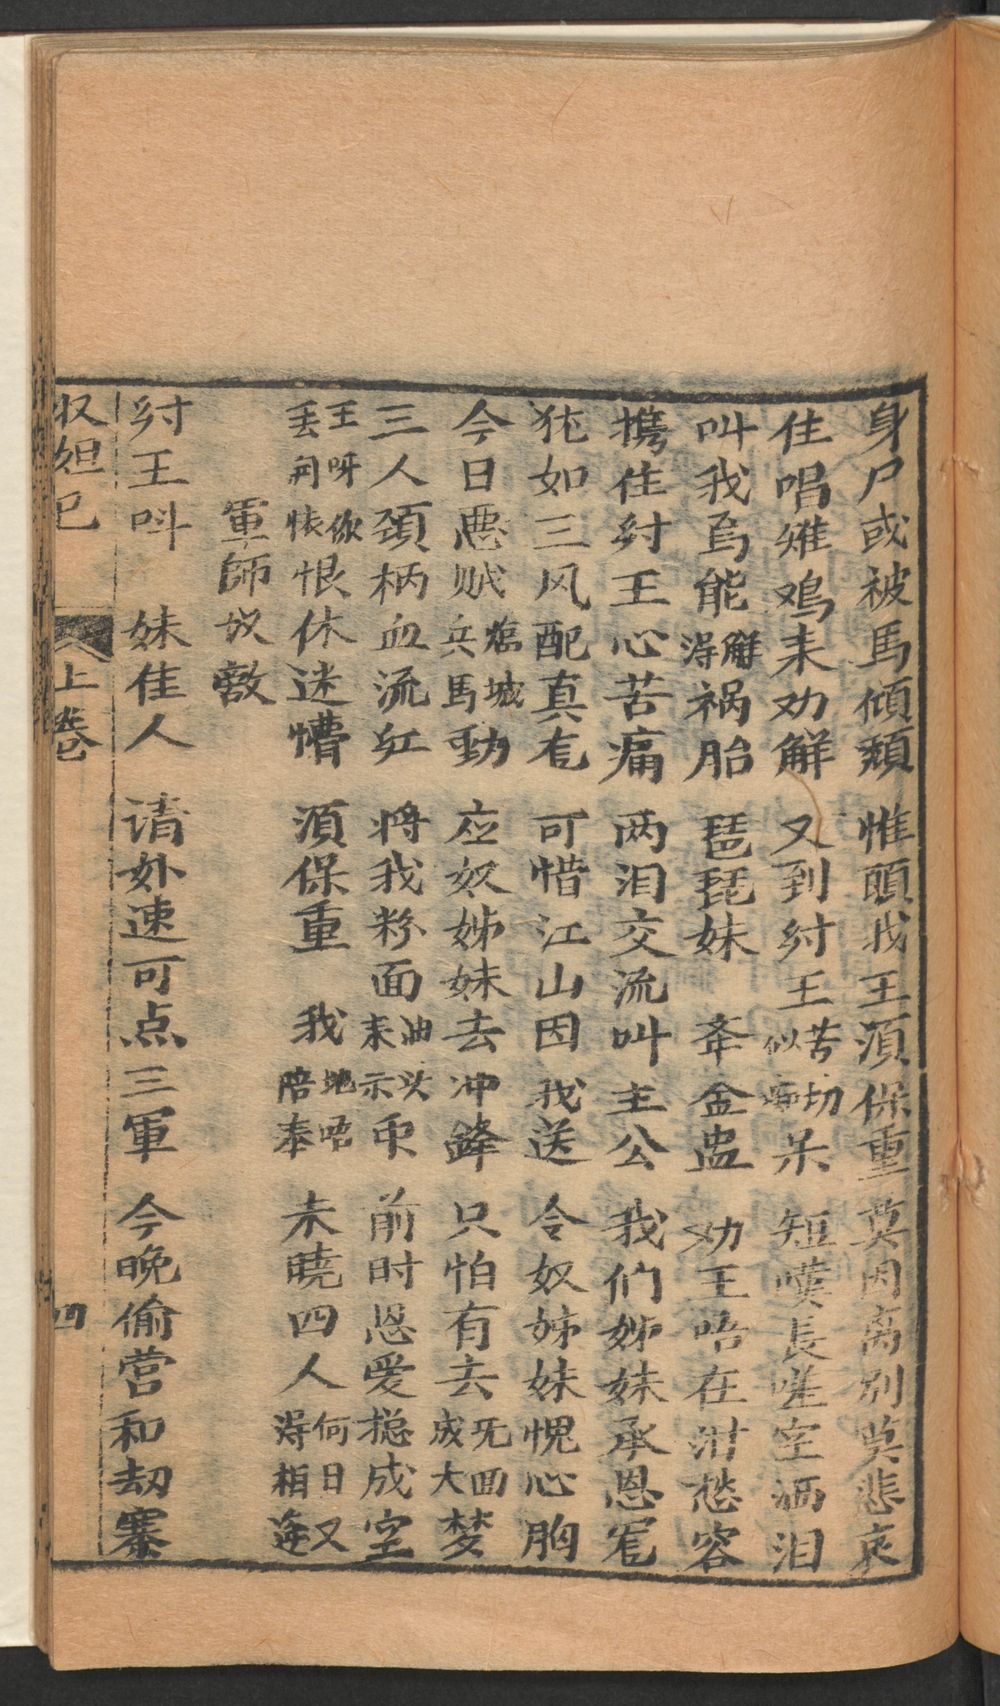 身尸或被馬傾頹 惟頭我王湏保重 莫因离别莫悲哀
住唱雉鳴耒劝解 又到紂王苦切似呆 短嘆長嗟空洒泪
叫我烏能觧得祸胎 琵琶妹 奉金盅 劝王唔在泔愁容
携住紂王心苦痛 两泪交流叫主公 我们姊妹承恩宠
犹如三风配真宠 可惜江山因我送 令奴姊妹愧心胸
今日恶贼兵馬臨城動 应奴姊妹去冲鋒 只怕有去无回成大梦
三人頚柄血流红 将我粉面油头耒示众 前时恩爱搃成空
王呀你丢用悵恨休迷懵 湏保重 我地唔陪奉 未曉四人何日又得相逢
軍師议敵
紂王呌 妹佳人 请外速可点三軍 今晚偷营和刼寨
収妲己 上卷 四